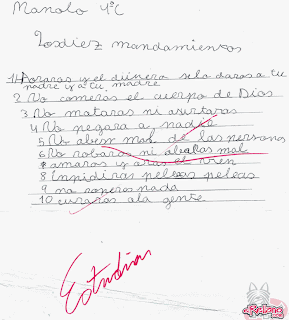 Manolo 4ºC
Los diez mandamientos
1 Horaras y el dinero se lo daras a tu
padre y a tu madre
2 No comeras el cuerpo de Dios
3 No mataras ni asustaras
4 No pegara a nadie
5 No abem mal de las personas
6 No robaras ni mal
7 amaros y aras el vien
8 Inpidiras peleas peleas
9 no roperos nada
10 curaros ala gente
Estudiar